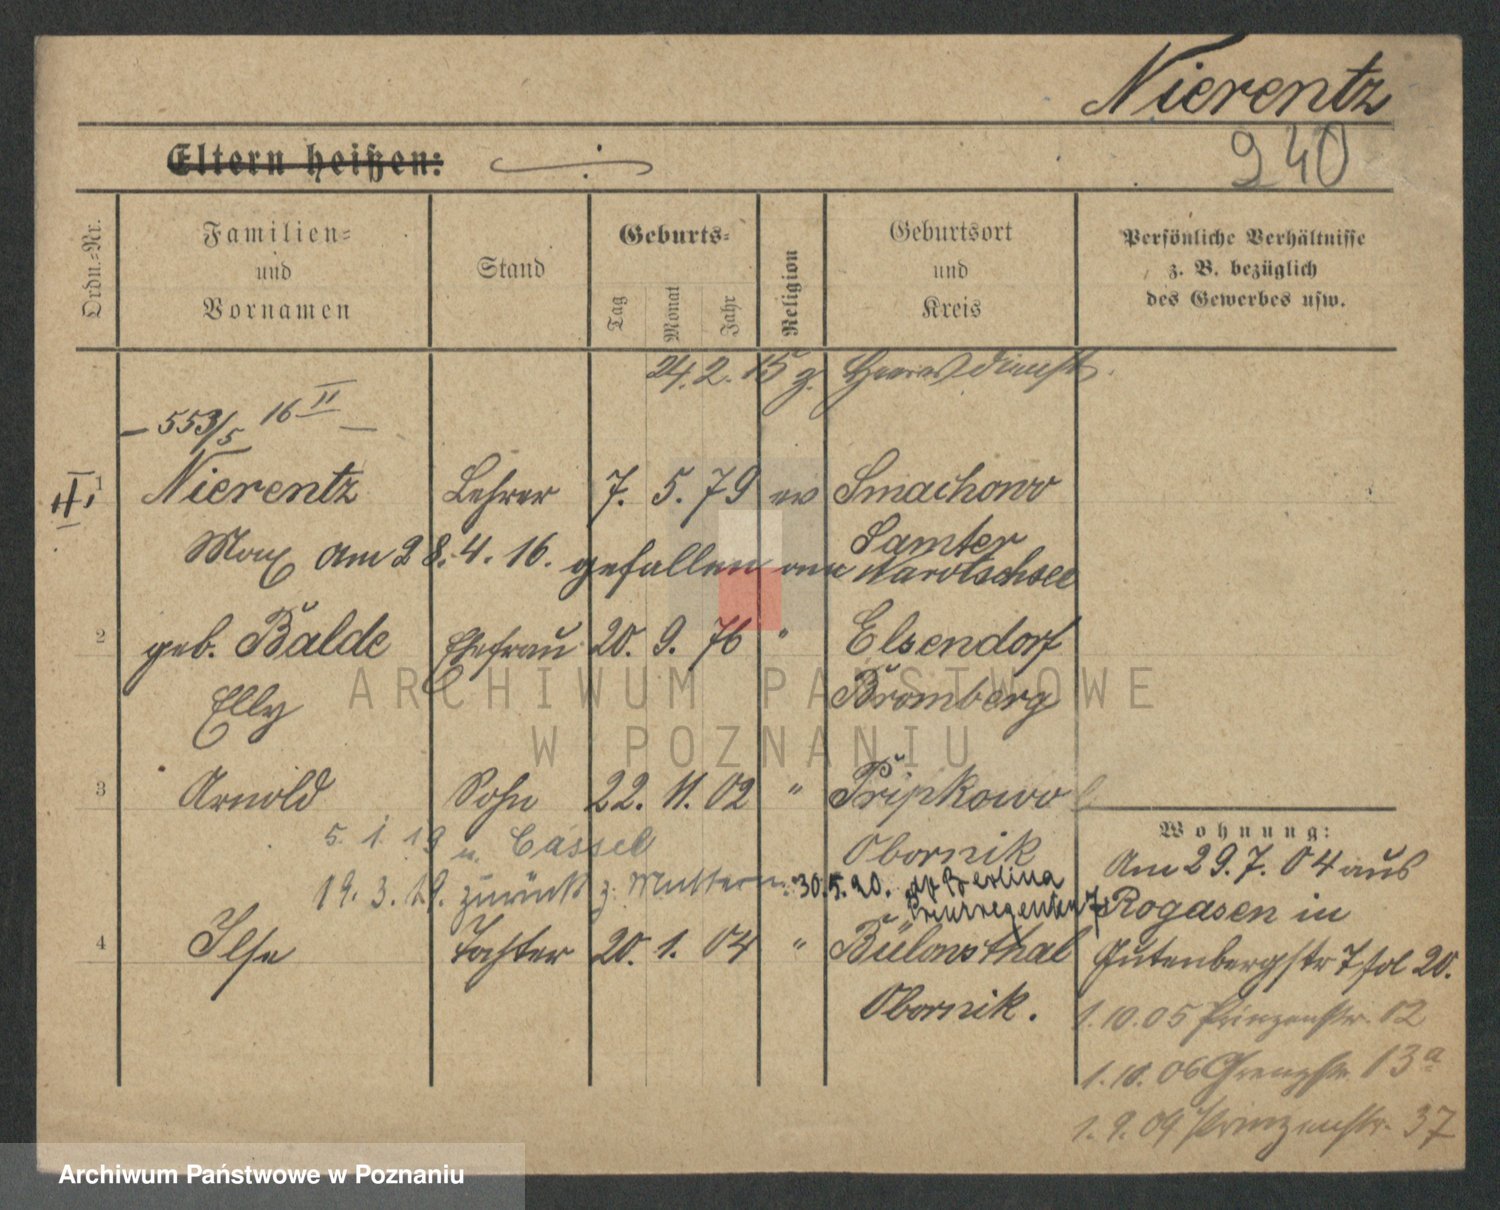 Nierentz
240
Eltern heißen:
Ordn.-Nr.
Familien-
und
Vornamen
Stand
Geburts-
Tag
Monat
Jahr
Religion
Geburtsort
und
Kreis
Persönliche Verhältnisse
z. B. bezüglich
des Gewerbes usw.
24. 2. 15 z. Heeresdienst.
- 553/5 16 II -
II, 1 Nierentz Lehrer 7. 5. 79 ev Smachowo
Samter
Max am 28. 4. 16. gefallen am Narotschsee
2 geb. Balde Ehefrau 20. 9. 76 " Elsendorf
Elly Bromberg
3 Arnold Sohn 22. 11. 02 " Pripkowo
Obornik
5. 1. 19 n. Cassel
19. 3. 19. zurück z. Mutter 30.5.20.
4 Ilse Tochter 20. 1. 04 " Bülowsthal
Obornik.
Wohnung:
Am 29. 7. 04 aus
Rogasen in
Gutenbergstr 7 fol 20.
1. 10. 05 Prinzenstr. 12
1. 10. 06 Grenzstr. 13a
1. 9. 09 Prinzenstr. 37
ARCHIWUM PAŃSTWOWE
W POZNANIU
Archiwum Państwowe w Poznaniu